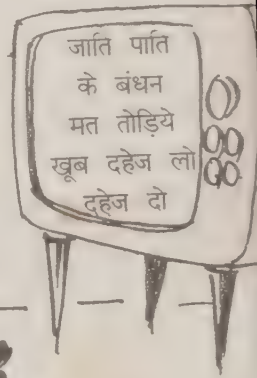 जाति पाति
के बंधन
मत तोड़िये
खूब दहेज लो
दहेज दो